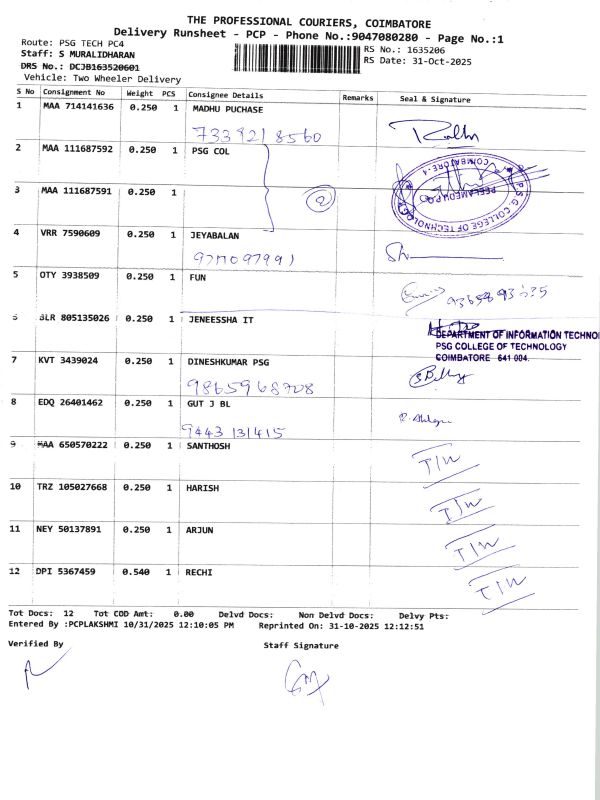 THE PROFESSIONAL COURIERS, COIMBATORE
Delivery Runsheet - PCP - Phone No.:9047080280 - Page No.:1
Route: PSG TECH PC4
Staff: S MURALIDHARAN
RS No.: 1635206
DRS No.: DCJB163520601
RS Date: 31-Oct-2025
Vehicle: Two Wheeler Delivery
S No Consignment No Weight PCS Consignee Details Remarks Seal & Signature
1 MAA 714141636 0.250 1 MADHU PUCHASE
7339218560
2 MAA 111687592 0.250 1 PSG COL
P.S.G. COLLEGE OF TECHNOLOGY
PEELAMEDU P.O.
COIMBATORE-4
3 MAA 111687591 0.250 1
2
4 VRR 7590609 0.250 1 JEYABALAN
5 OTY 3938509 0.250 1 FUN
6 BLR 805135026 0.250 1 JENEESSHA IT
DEPARTMENT OF INFORMATION TECHNO
PSG COLLEGE OF TECHNOLOGY
COIMBATORE 641 004.
7 KVT 3439024 0.250 1 DINESHKUMAR PSG
9865968708
8 EDQ 26401462 0.250 1 GUT J BL
9443 131415
9 MAA 650570222 0.250 1 SANTHOSH
T/W
10 TRZ 105027668 0.250 1 HARISH
T/W
11 NEY 50137891 0.250 1 ARJUN
T/W
12 DPI 5367459 0.540 1 RECHI
T/W
Tot Docs: 12 Tot COD Amt: 0.00 Delvd Docs: Non Delvd Docs: Delvy Pts:
Entered By :PCPLAKSHMI 10/31/2025 12:10:05 PM Reprinted On: 31-10-2025 12:12:51
Verified By Staff Signature